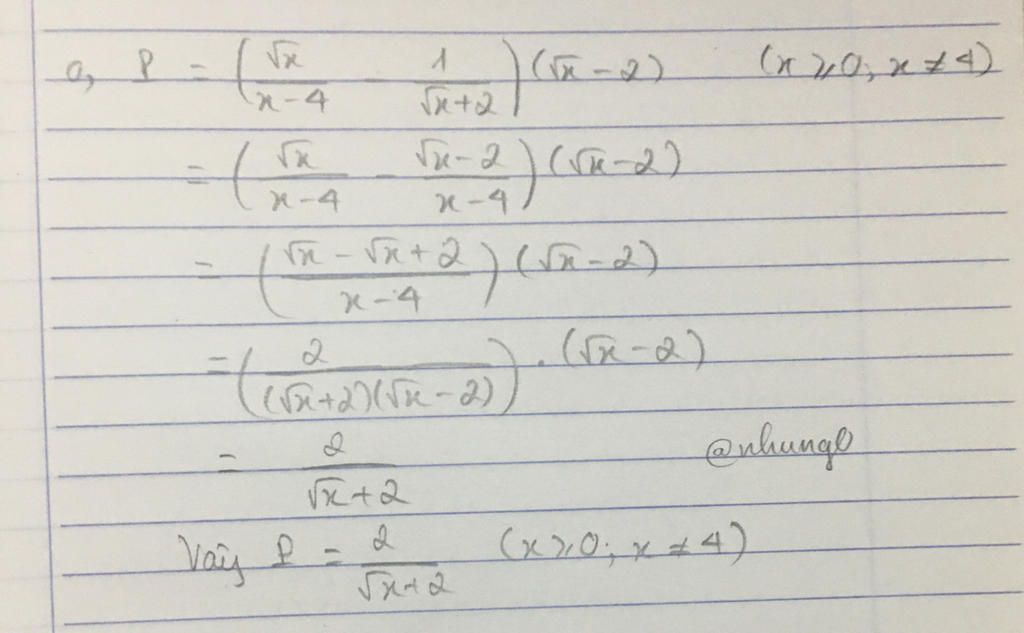 a, P = (√x/(x-4) - 1/(√x+2))(√x-2) (x ⩾ 0; x ≠ 4)
= (√x/(x-4) - (√x-2)/(x-4))(√x-2)
= ((√x-√x+2)/(x-4))(√x-2)
= (2/((√x+2)(√x-2))).(√x-2)
= 2/(√x+2) @nhungl
Vậy P = 2/(√x+2) (x ⩾ 0; x ≠ 4)